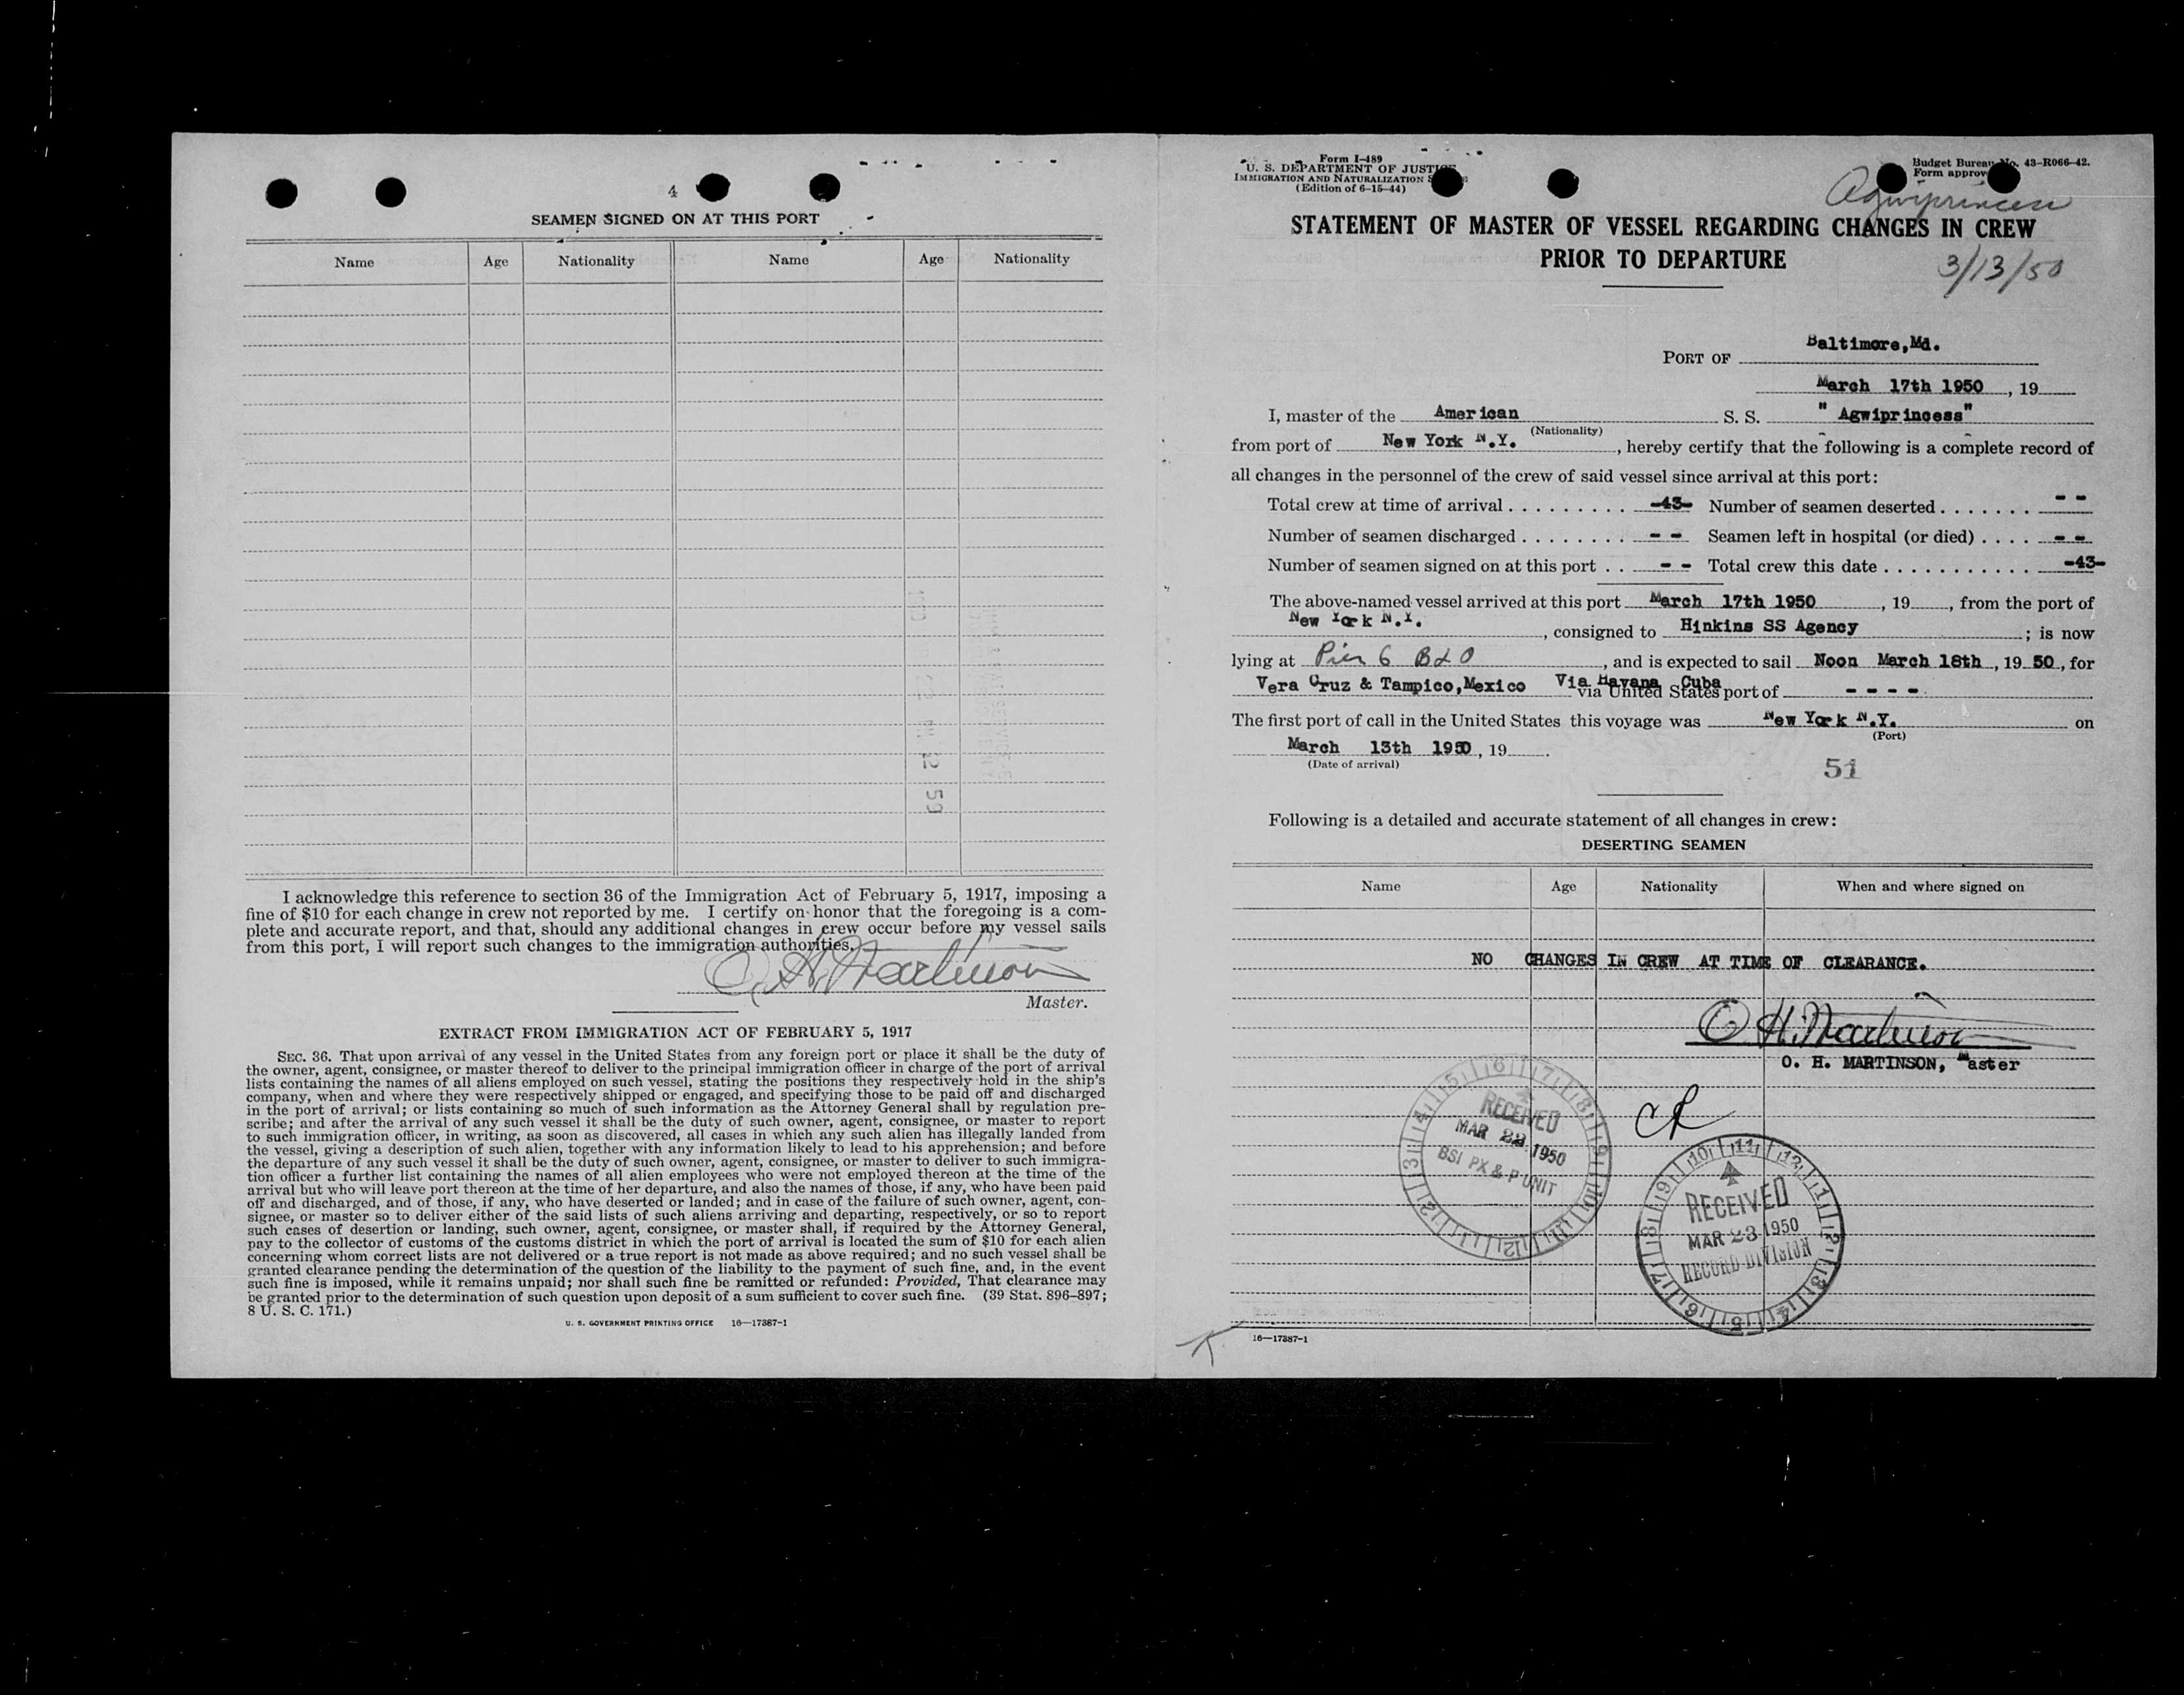 4
SEAMEN SIGNED ON AT THIS PORT
Name Age Nationality Name Age Nationality
12 59
I acknowledge this reference to section 36 of the Immigration Act of February 5, 1917, imposing a
fine of $10 for each change in crew not reported by me. I certify on honor that the foregoing is a com-
plete and accurate report, and that, should any additional changes in crew occur before my vessel sails
from this port, I will report such changes to the immigration authorities.
O. H. Martinson
Master.
EXTRACT FROM IMMIGRATION ACT OF FEBRUARY 5, 1917
SEC. 36. That upon arrival of any vessel in the United States from any foreign port or place it shall be the duty of
the owner, agent, consignee, or master thereof to deliver to the principal immigration officer in charge of the port of arrival
lists containing the names of all aliens employed on such vessel, stating the positions they respectively hold in the ship's
company, when and where they were respectively shipped or engaged, and specifying those to be paid off and discharged
in the port of arrival; or lists containing so much of such information as the Attorney General shall by regulation pre-
scribe; and after the arrival of any such vessel it shall be the duty of such owner, agent, consignee, or master to report
to such immigration officer, in writing, as soon as discovered, all cases in which any such alien has illegally landed from
the vessel, giving a description of such alien, together with any information likely to lead to his apprehension; and before
the departure of any such vessel it shall be the duty of such owner, agent, consignee, or master to deliver to such immigra-
tion officer a further list containing the names of all alien employees who were not employed thereon at the time of the
arrival but who will leave port thereon at the time of her departure, and also the names of those, if any, who have been paid
off and discharged, and of those, if any, who have deserted or landed; and in case of the failure of such owner, agent, con-
signee, or master so to deliver either of the said lists of such aliens arriving and departing, respectively, or so to report
such cases of desertion or landing, such owner, agent, consignee, or master shall, if required by the Attorney General,
pay to the collector of customs of the customs district in which the port of arrival is located the sum of $10 for each alien
concerning whom correct lists are not delivered or a true report is not made as above required; and no such vessel shall be
granted clearance pending the determination of the question of the liability to the payment of such fine, and, in the event
such fine is imposed, while it remains unpaid; nor shall such fine be remitted or refunded: Provided, That clearance may
be granted prior to the determination of such question upon deposit of a sum sufficient to cover such fine. (39 Stat. 896–897;
8 U. S. C. 171.)
U. S. GOVERNMENT PRINTING OFFICE 16—17387-1
Form I-489
U. S. DEPARTMENT OF JUSTICE
IMMIGRATION AND NATURALIZATION
(Edition of 6-15-44)
Budget Bureau No. 43-R066-42.
Form approv
Agwiprincess
STATEMENT OF MASTER OF VESSEL REGARDING CHANGES IN CREW
PRIOR TO DEPARTURE
3/13/50
PORT OF Baltimore,Md.
March 17th 1950, 19
I, master of the American S. S. " Agwiprincess"
(Nationality)
from port of New York N.Y., hereby certify that the following is a complete record of
all changes in the personnel of the crew of said vessel since arrival at this port:
Total crew at time of arrival . . . . . . . . . -43- Number of seamen deserted . . . . . . . - -
Number of seamen discharged . . . . . . . . - - Seamen left in hospital (or died) . . . . - -
Number of seamen signed on at this port . . - - Total crew this date . . . . . . . . . . . -43-
The above-named vessel arrived at this port March 17th 1950, 19, from the port of
New York N.Y., consigned to Hinkins SS Agency; is now
lying at Pier 6 B&O, and is expected to sail Noon March 18th, 19 50, for
Vera Cruz & Tampico,Mexico Via Havana, Cuba via United States port of - - - -
The first port of call in the United States this voyage was New York N.Y. on
(Port)
March 13th 1950, 19.
(Date of arrival)
51
Following is a detailed and accurate statement of all changes in crew:
DESERTING SEAMEN
Name Age Nationality When and where signed on
NO CHANGES IN CREW AT TIME OF CLEARANCE.
O H. Martinson
O. H. MARTINSON, Master
CR
RECEIVED
MAR 22 1950
BSI PX & P UNIT
RECEIVED
MAR 23 1950
RECORD DIVISION
16—17387-1